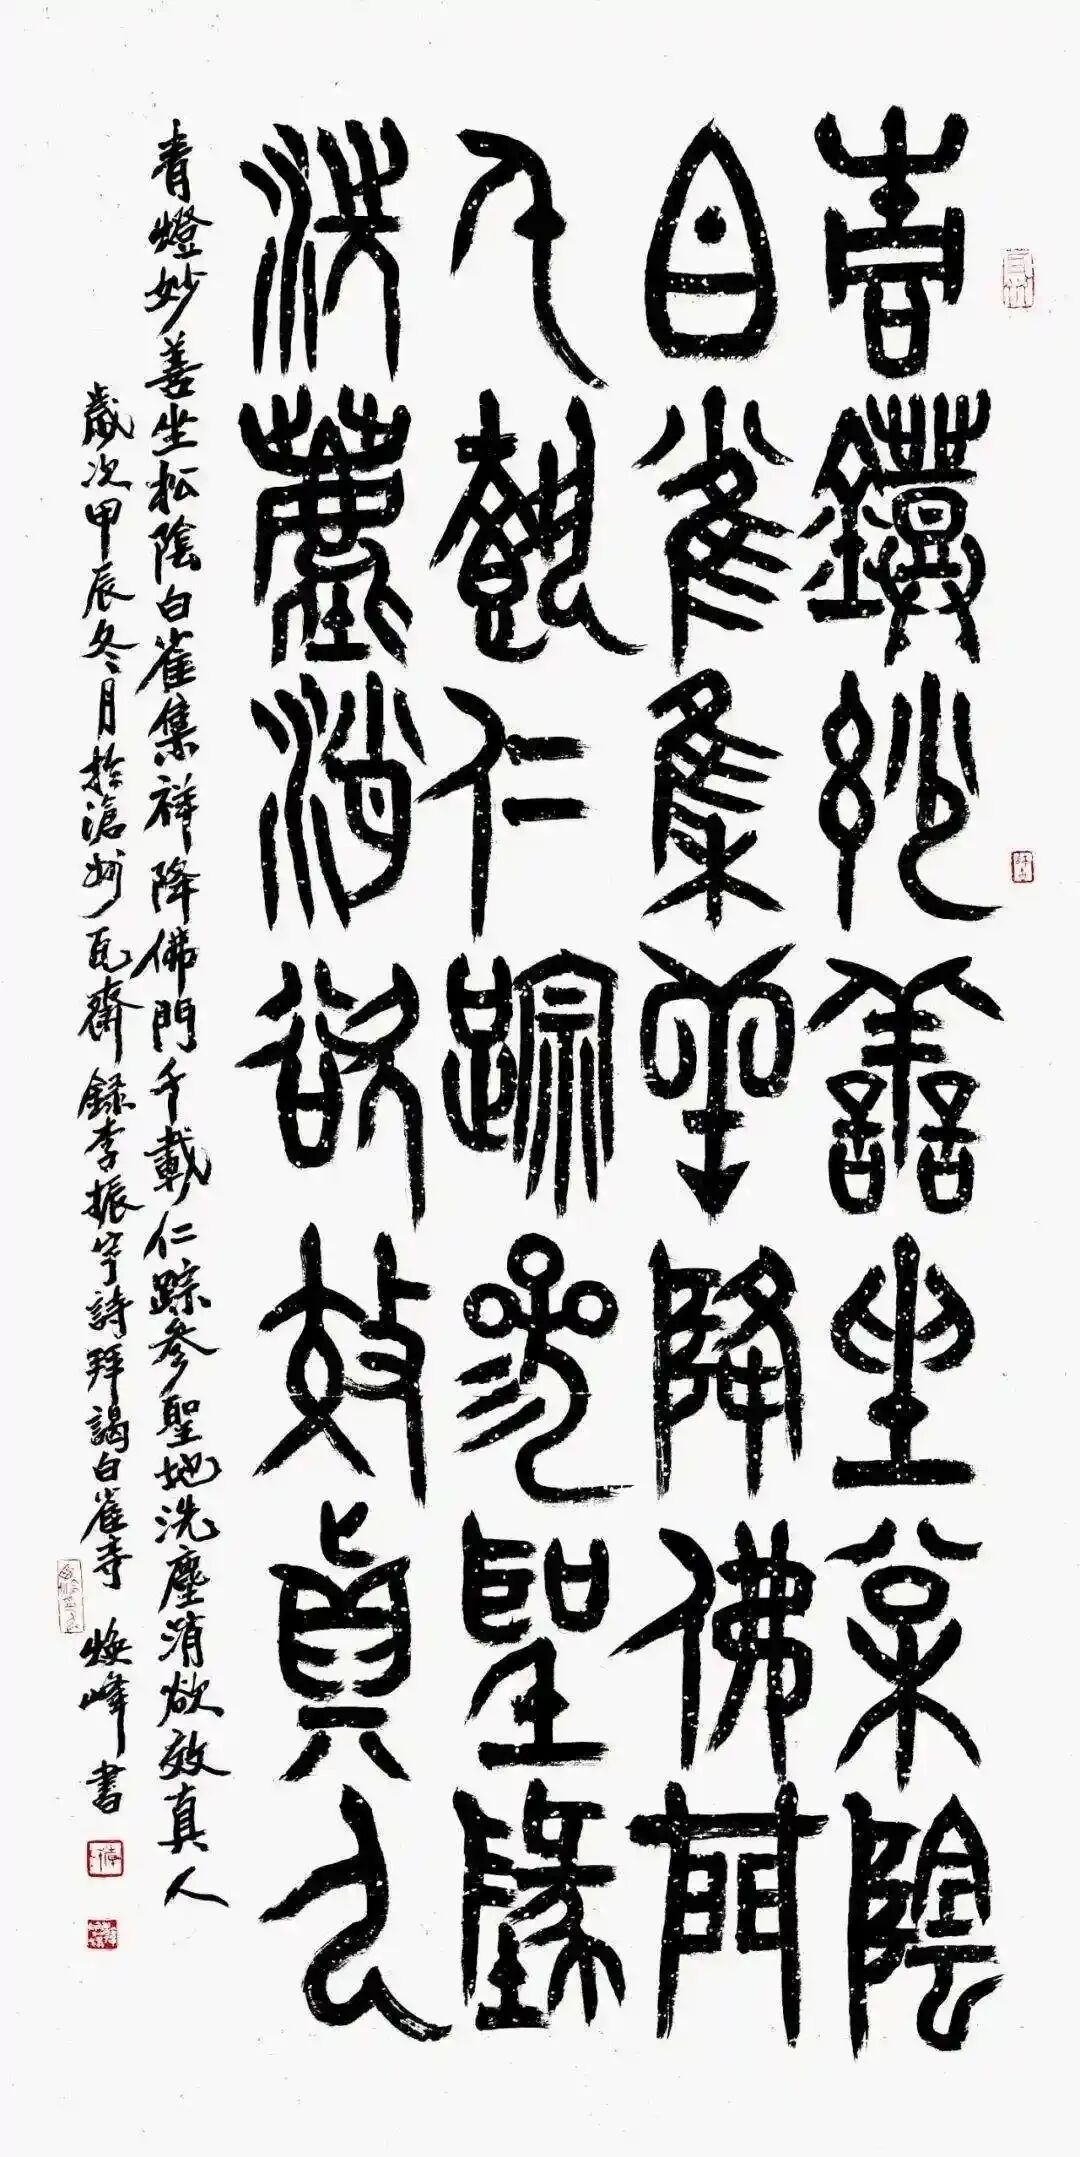 青鐙妙善坐松陰
白雀集祥降佛門
千載仁踪參聖地
洗塵消欲效真人
青燈妙善坐松陰白雀集祥降佛門千載仁踪參聖地洗塵消欲效真人
歲次甲辰冬月於滄州瓦齋録李振寧詩拜謁白雀寺 焕峰書